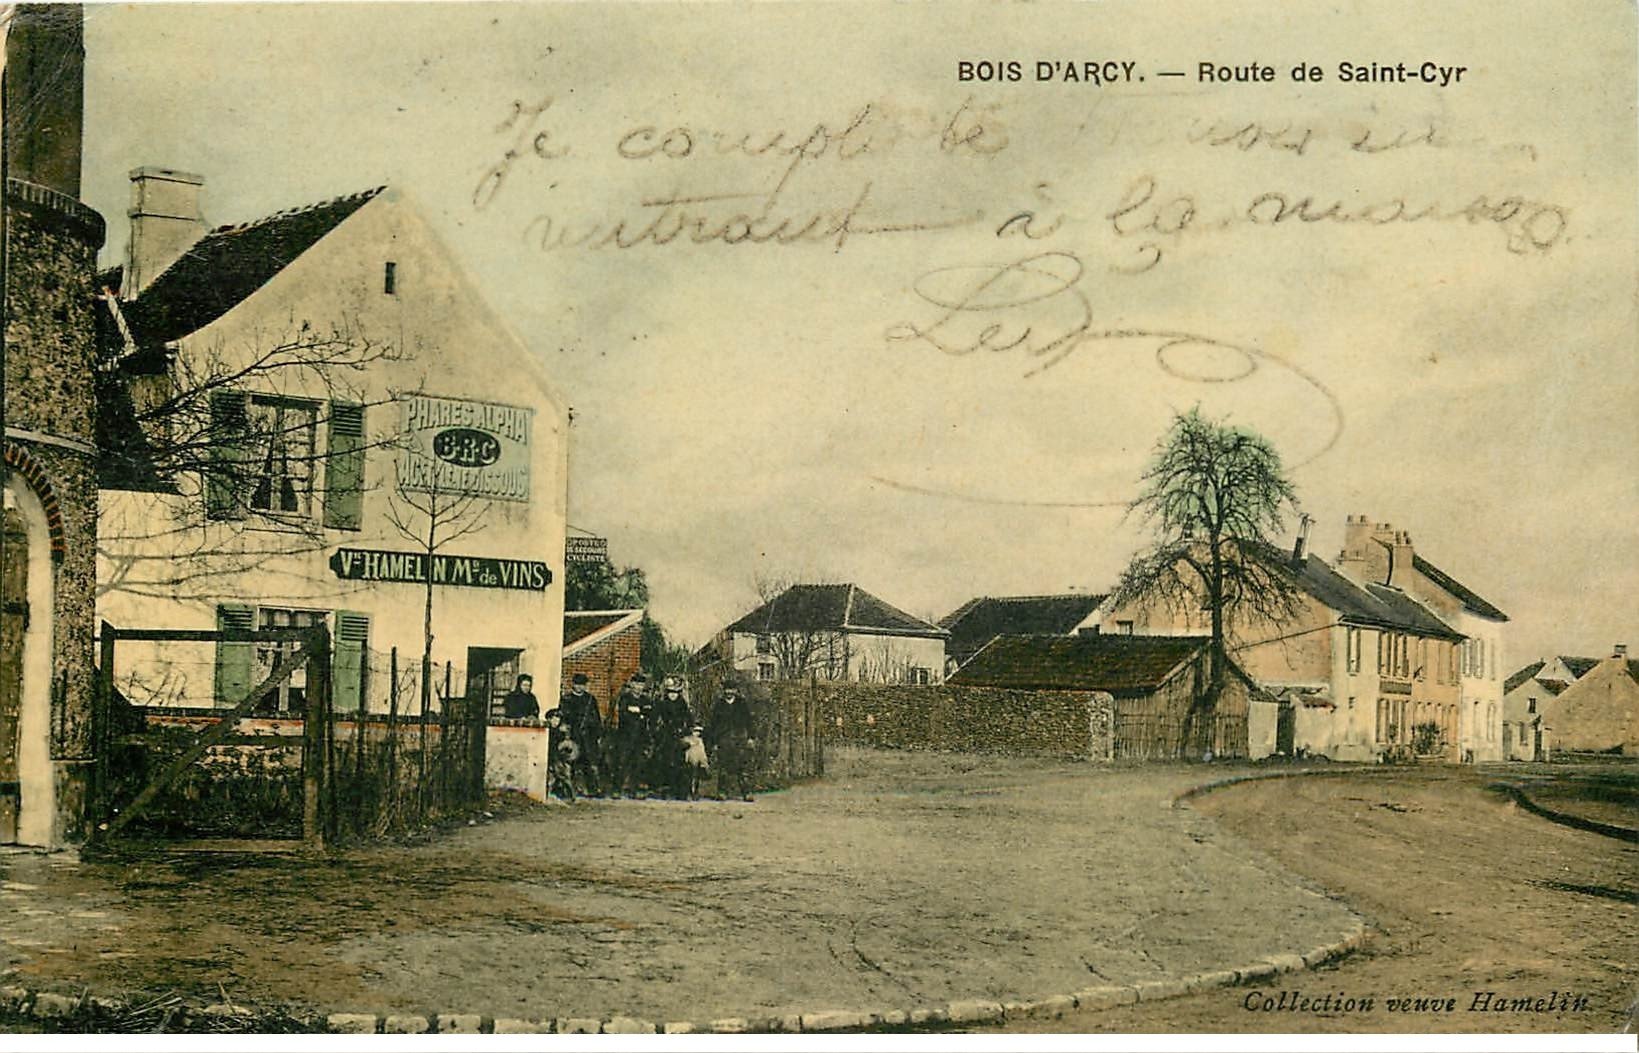 BOIS D'ARCY. — Route de Saint-Cyr
Je compte
rentrant à la maison
PHARES ALPHA
B·R·C
ACETYLENE DISSOUS
Vve HAMELIN Md de VINS
POSTE
DE SECOURS
CYCLISTE
Collection veuve Hamelin